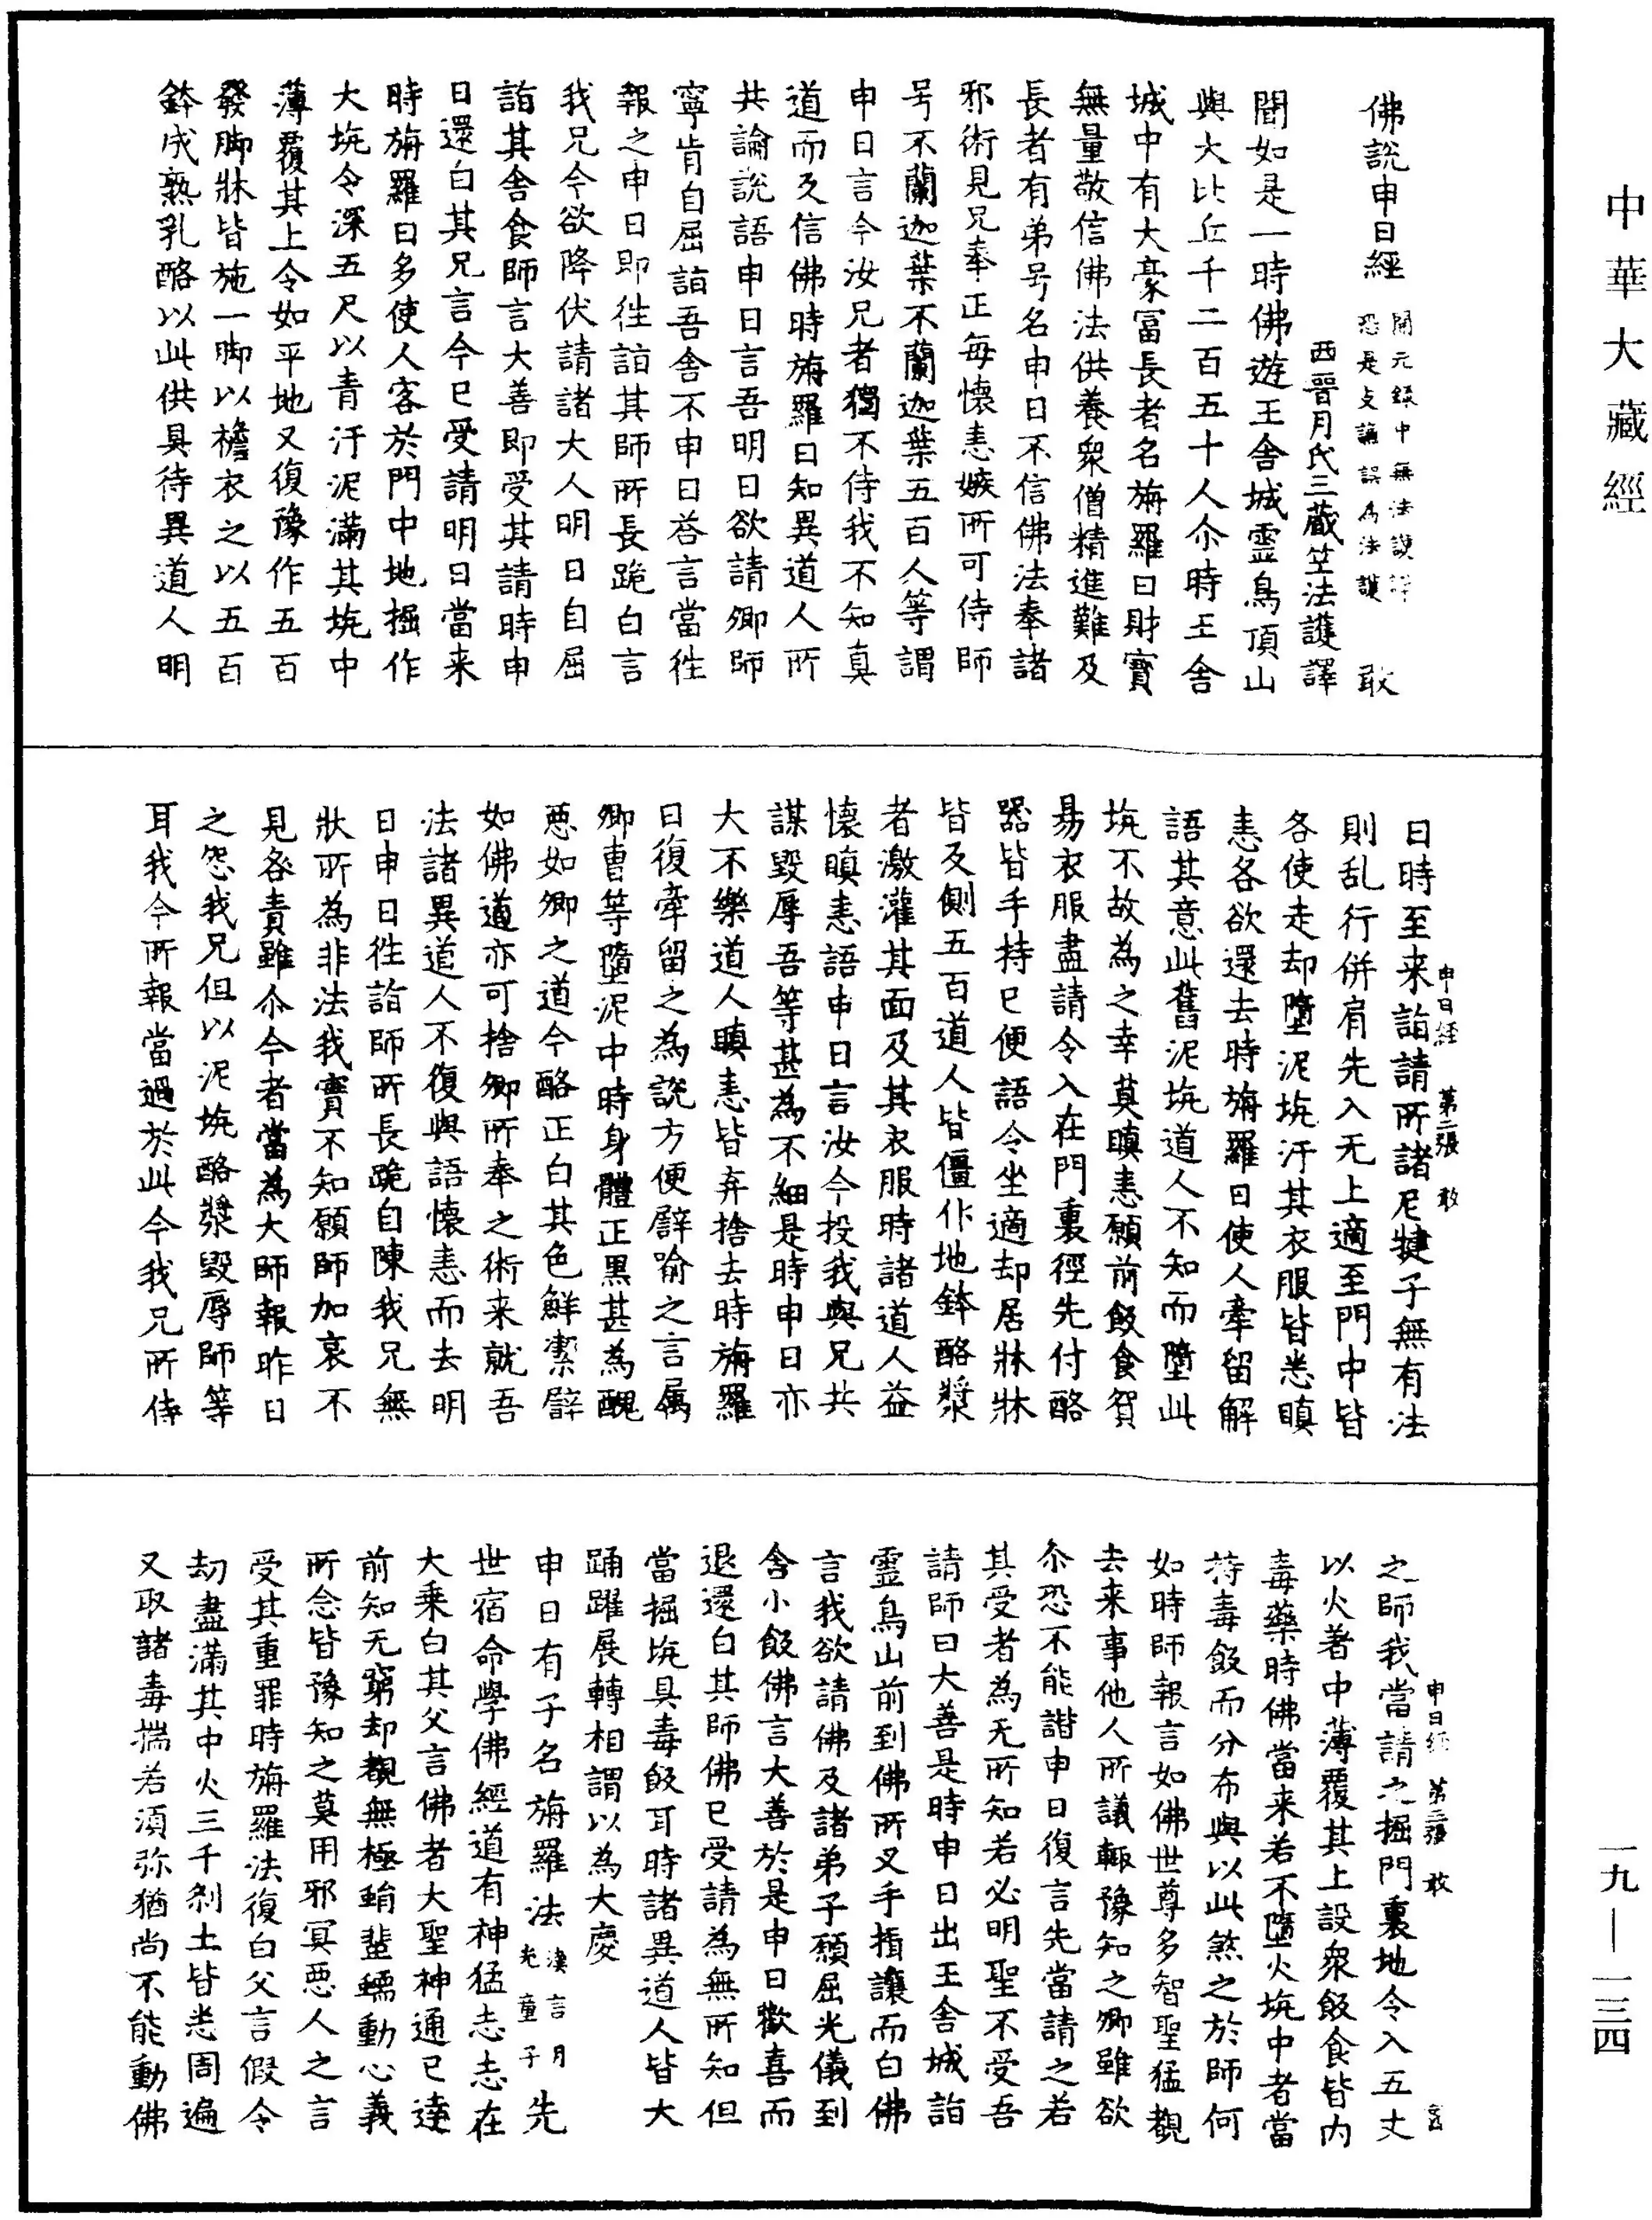 中華大藏經
佛說申日經 開元錄中無法護譯恐是支謙誤為法護 敢
西晉月氏三藏竺法護譯
聞如是一時佛遊王舍城靈鳥頂山
與大比丘千二百五十人尒時王舍
城中有大豪冨長者名旃羅日財寶
無量敬信佛法供養衆僧精進難及
長者有弟号名申日不信佛法奉諸
邪術見兄奉正每懷恚嫉所可侍師
号不蘭迦葉不蘭迦葉五百人等謂
申日言今汝兄者獨不侍我不知真
道而反信佛時旃羅日知異道人所
共論說語申日言吾明日欲請卿師
寧肯自屈詣吾舍不申日荅言當徃
報之申日即徃詣其師所長跪白言
我兄今欲降伏請諸大人明日自屈
詣其舍食師言大善即受其請時申
日還白其兄言今已受請明日當来
時旃羅日多使人客於門中地掘作
大坑令深五尺以青汙泥滿其坑中
薄覆其上令如平地又復豫作五百
發脚牀皆施一脚以襜衣之以五百
鉢成熟乳酪以此供具待異道人明
申日經 第二張 敢
日時至来詣請所諸尼揵子無有法
則乱行併肩先入无上適至門中皆
各使走却墮泥坑汙其衣服皆恚瞋
恚各欲還去時旃羅日使人牽留解
語其意此舊泥坑道人不知而墮此
坑不故為之幸莫瞋恚願前飯食貿
易衣服盡請令入在門裏徑先付酪
器皆手持已便語令坐適却居牀牀
皆反側五百道人皆僵仆地鉢酪漿
者激灌其面及其衣服時諸道人益
懷瞋恚語申日言汝今投我與兄共
謀毀辱吾等甚為不細是時申日亦
大不樂道人瞋恚皆弃捨去時旃羅
日復牽留之為說方便譬喻之言属
卿曹等墮泥中時身體正黑甚為醜
惡如卿之道今酪正白其色鮮潔譬
如佛道亦可捨卿所奉之術来就吾
法諸異道人不復與語懷恚而去明
日申日徃詣師所長跪自陳我兄無
狀所為非法我實不知願師加哀不
見咎責雖尒今者當為大師報昨日
之怨我兄但以泥坑酪漿毀辱師等
耳我今所報當過於此今我兄所侍
申日經 第三張 敢
之師我當請之掘門裏地令入五丈
以火著中薄覆其上設衆飯食皆内
毒藥時佛當来若不墮火坑中者當
持毒飯而分布與以此煞之於師何
如時師報言如佛世尊多智聖猛覩
去来事他人所議輒豫知之卿雖欲
尒恐不能諧申日復言先當請之若
其受者為无所知若必明聖不受吾
請師曰大善是時申日出王舍城詣
靈鳥山前到佛所叉手揖讓而白佛
言我欲請佛及諸弟子願屈光儀到
舍小飯佛言大善於是申日歡喜而
退還白其師佛已受請為無所知但
當掘坑具毒飯耳時諸異道人皆大
踊躍展轉相謂以為大慶
申日有子名旃羅法 漢言月光童子 先
世宿命學佛經道有神猛志志在
大乗白其父言佛者大聖神通已達
前知无窮却覩無極蜎蜚蠕動心義
所念皆豫知之莫用邪冥惡人之言
受其重罪時旃羅法復白父言假令
劫盡滿其中火三千剎土皆悉周遍
又取諸毒揣若湏弥猶尚不能動佛
一九—一三四